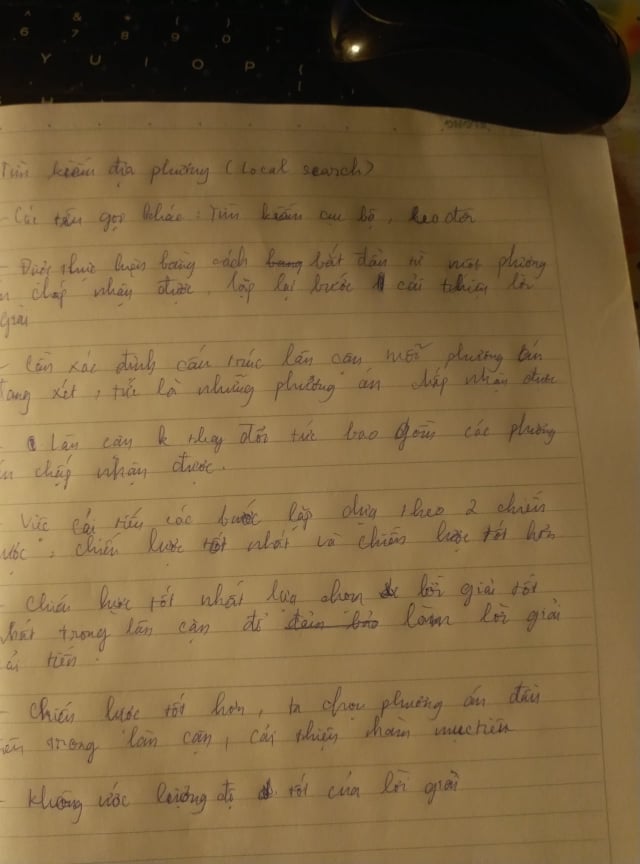 ^ & * ( )
6 7 8 9 0
Y U I O P {
[
Tìm kiếm địa phương (Local search)
- Các tên gọi khác: Tìm kiếm cục bộ, leo đồi
- Được thực hiện bằng cách bắt đầu từ một phương
án chấp nhận được, lặp lại bước cải thiện lời
giải
- Cần xác định cấu trúc lân cận mỗi phương án
đang xét, tức là những phương án chấp nhận được
- Lân cận k thay đổi tức bao gồm các phương
án chấp nhận được.
- Việc cải tiến các bước lặp dựa theo 2 chiến
lược, chiến lược tốt nhất và chiến lược tốt hơn
- Chiến lược tốt nhất lựa chọn lời giải tốt
nhất trong lân cận để đảm bảo làm lời giải
cải tiến.
- Chiến lược tốt hơn, ta chọn phương án đầu
tiên trong lân cận, cải thiện hàm mục tiêu
- Không ước lượng độ tốt của lời giải